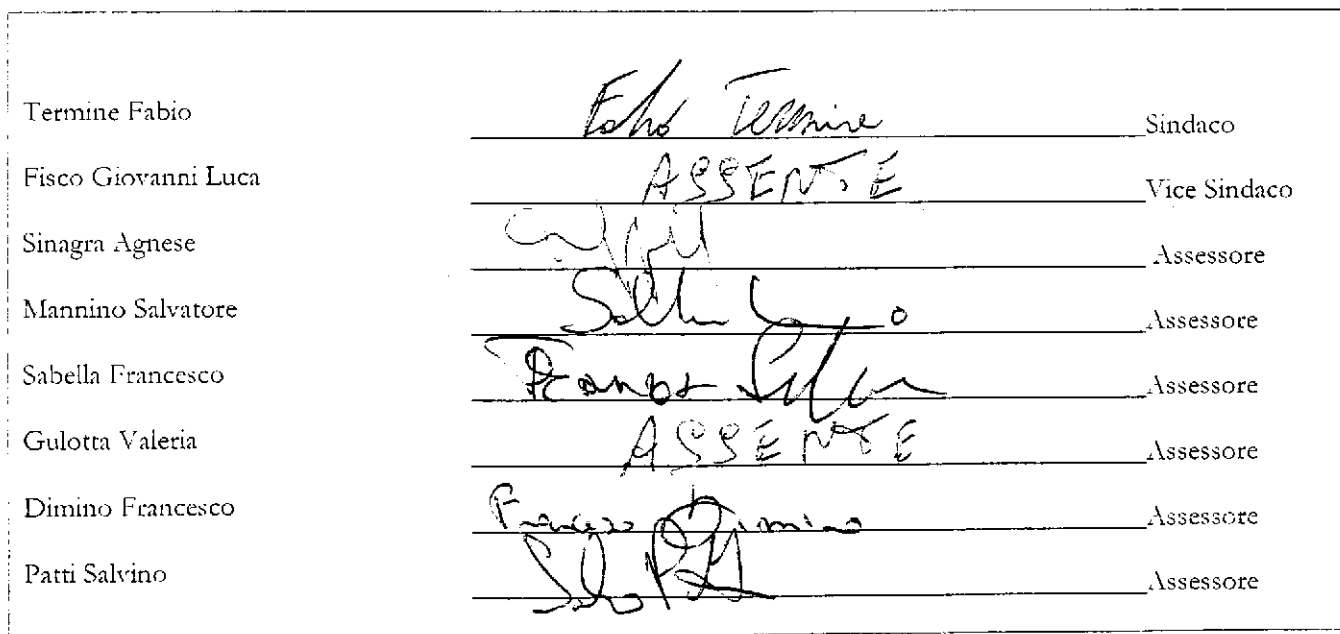 Termine Fabio Fabio Termine Sindaco
Fisco Giovanni Luca ASSENTE Vice Sindaco
Sinagra Agnese Assessore
Mannino Salvatore Assessore
Sabella Francesco Assessore
Gulotta Valeria ASSENTE Assessore
Dimino Francesco Francesco Dimino Assessore
Patti Salvino Assessore